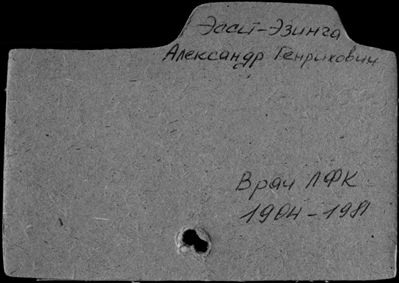 Эссит-Эзинга
Александр Генрихович
Врач ЛФК
1904-1981